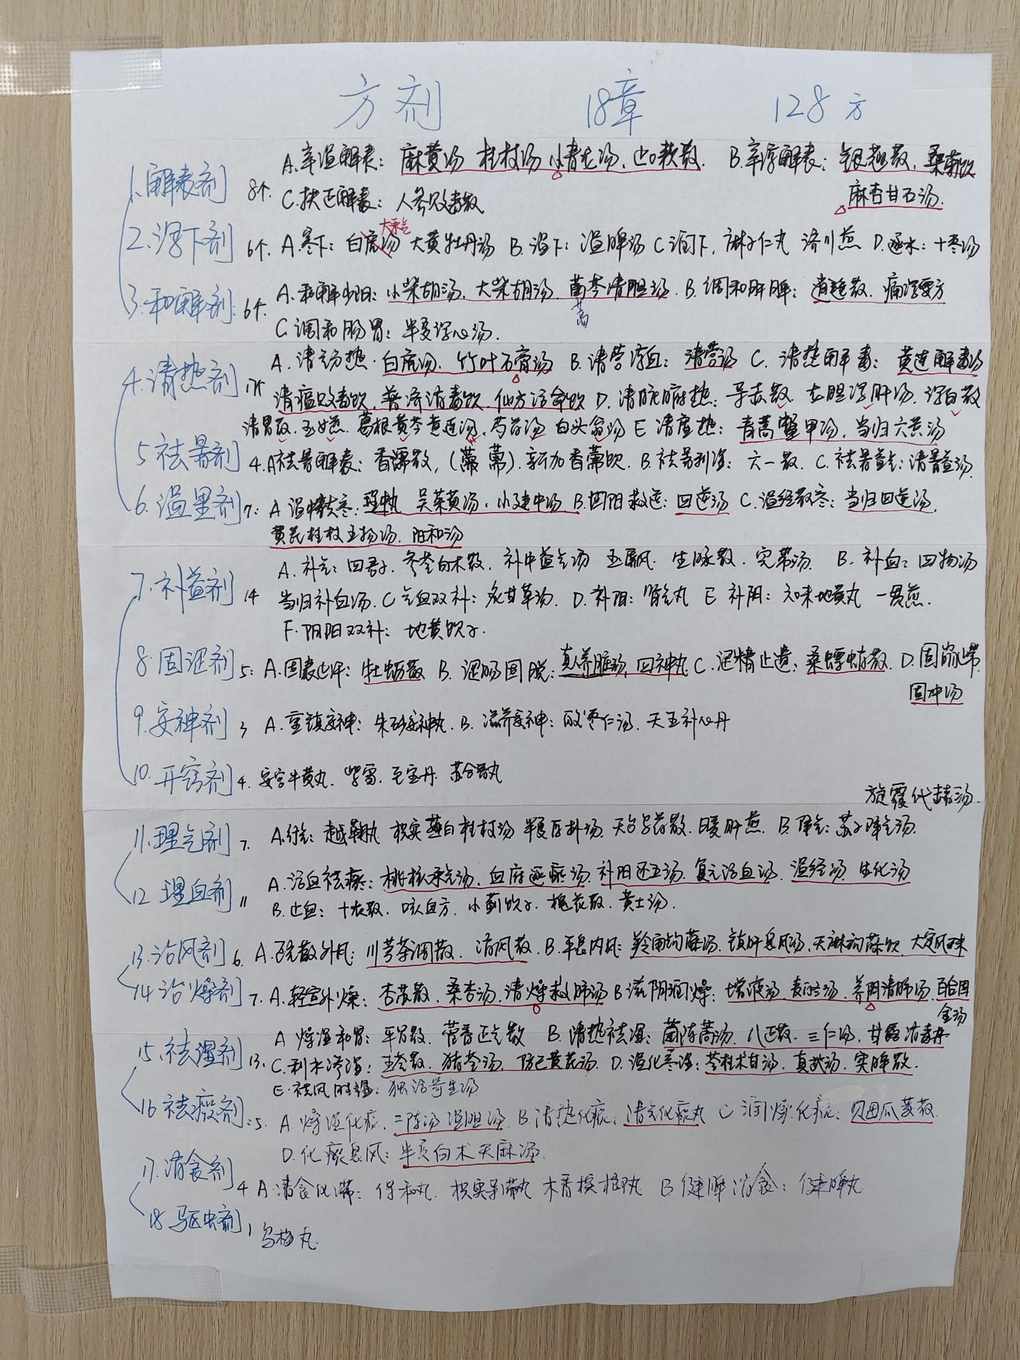 方剂 18章 128方
1.解表剂 8个. A.辛温解表: 麻黄汤 桂枝汤 小青龙汤, 止嗽散. B.辛凉解表: 银翘散, 桑菊饮
C.扶正解表: 人参败毒散 麻杏甘石汤.
2.泻下剂 6个. A.寒下: 白虎汤 大承气 大黄牡丹汤 B.温下: 温脾汤 C.润下, 麻子仁丸 济川煎 D.逐水: 十枣汤
3.和解剂. 6个. A.和解少阳: 小柴胡汤, 大柴胡汤, 蒿芩清胆汤. B.调和肝脾: 逍遥散, 痛泻要方
蒿
C.调和肠胃: 半夏泻心汤.
4.清热剂 A.清气分热. 白虎汤, 竹叶石膏汤 B.清营凉血: 清营汤 C.清热解毒: 黄连解毒汤
清瘟败毒饮, 普济消毒饮, 仙方活命饮 D.清脏腑热: 导赤散 龙胆泻肝汤, 泻白散
清胃散. 玉女煎. 葛根黄芩黄连汤, 芍药汤 白头翁汤 E 清虚热: 青蒿鳖甲汤, 当归六黄汤
5 祛暑剂 4. A祛暑解表: 香薷散, (薷 薷). 新加香薷饮 B.祛暑利湿: 六一散. C.祛暑益气: 清暑益汤.
6.温里剂 7: A 温中祛寒: 理中丸 吴茱萸汤, 小建中汤 B.回阳救逆: 四逆汤 C.温经散寒: 当归四逆汤,
黄芪桂枝五物汤, 阳和汤
7.补益剂 14 A.补气: 四君子, 参苓白术散, 补中益气汤 玉屏风. 生脉散, 完带汤 B.补血: 四物汤
当归补血汤. C气血双补: 炙甘草汤. D.补阳: 肾气丸 E 补阴: 六味地黄丸 一贯煎.
F.阴阳双补: 地黄饮子.
8.固涩剂 5: A.固表止汗: 牡蛎散 B.涩肠固脱: 真人养脏汤, 四神丸 C.涩精止遗: 桑螵蛸散. D.固崩止带
固冲汤
9.安神剂 3 A.重镇安神: 朱砂安神丸. B.滋养安神: 酸枣仁汤, 天王补心丹
10.开窍剂 4. 安宫牛黄丸. 紫雪. 至宝丹. 苏合香丸
旋覆代赭汤.
11.理气剂 7. A.行气: 越鞠丸 枳实薤白桂枝汤 半夏厚朴汤, 天台乌药散. 暖肝煎. B 降气: 苏子降气汤.
12 理血剂 11 A.活血祛瘀: 桃核承气汤, 血府逐瘀汤 补阳还五汤, 复元活血汤, 温经汤, 生化汤
B.止血: 十灰散, 咳血方, 小蓟饮子, 槐花散, 黄土汤.
13.治风剂 6. A.疏散外风: 川芎茶调散, 消风散. B.平息内风: 羚角钩藤汤, 镇肝息风汤, 天麻钩藤饮 大定风珠
14 治燥剂 7. A.轻宣外燥: 杏苏散, 桑杏汤, 清燥救肺汤 B滋阴润燥: 增液汤, 麦门冬汤, 养阴清肺汤, 百合固
金汤
15.祛湿剂 13. A 燥湿和胃: 平胃散, 藿香正气散 B.清热祛湿: 茵陈蒿汤, 八正散, 三仁汤, 甘露消毒丹
C.利水渗湿: 五苓散, 猪苓汤, 防己黄芪汤 D.温化寒湿: 苓桂术甘汤, 真武汤, 实脾散.
E.祛风胜湿: 独活寄生汤
16 祛痰剂: 5. A 燥湿化痰, 二陈汤 温胆汤 B 清热化痰, 清气化痰丸 C 润燥化痰, 贝母瓜蒌散
D.化痰息风: 半夏白术天麻汤.
17.消食剂 4 A 消食化滞: 保和丸. 枳实导滞丸 木香槟榔丸 B 健脾消食: 健脾丸
18 驱虫剂 1 乌梅丸.